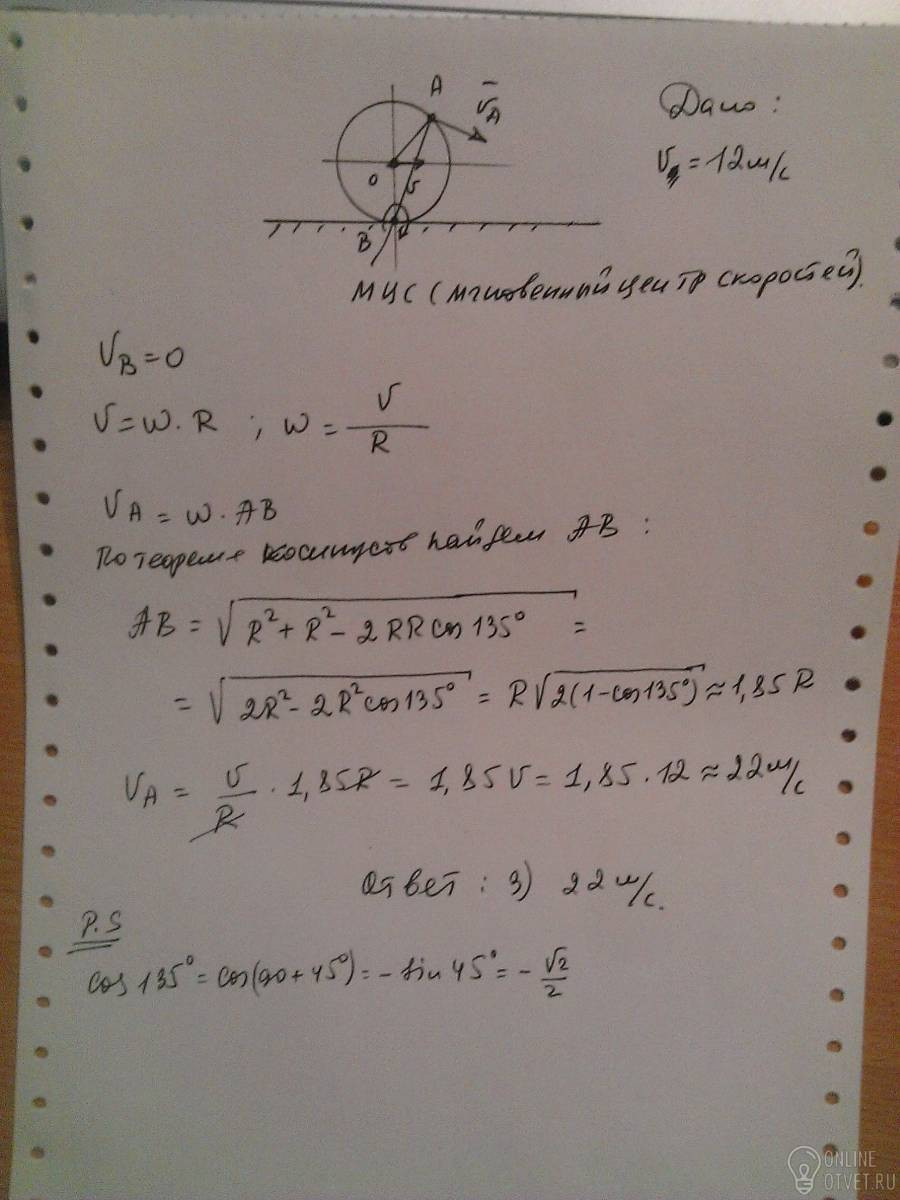 Дано:
V = 12 м/с
A
V̄A
O
V
B
МЦС (мгновенный центр скоростей).
VB = 0
V = ω · R ; ω = V/R
VA = ω · AB
По теореме косинусов найдем AB :
AB = √(R² + R² - 2RR cos 135°) =
= √(2R² - 2R² cos 135°) = R√(2(1 - cos 135°)) ≈ 1,85 R
VA = V/R · 1,85R = 1,85 V = 1,85 · 12 ≈ 22 м/с
Ответ : 3) 22 м/с.
P.S
cos 135° = cos(90 + 45°) = - sin 45° = - √2/2
ONLINE
OTVET.RU